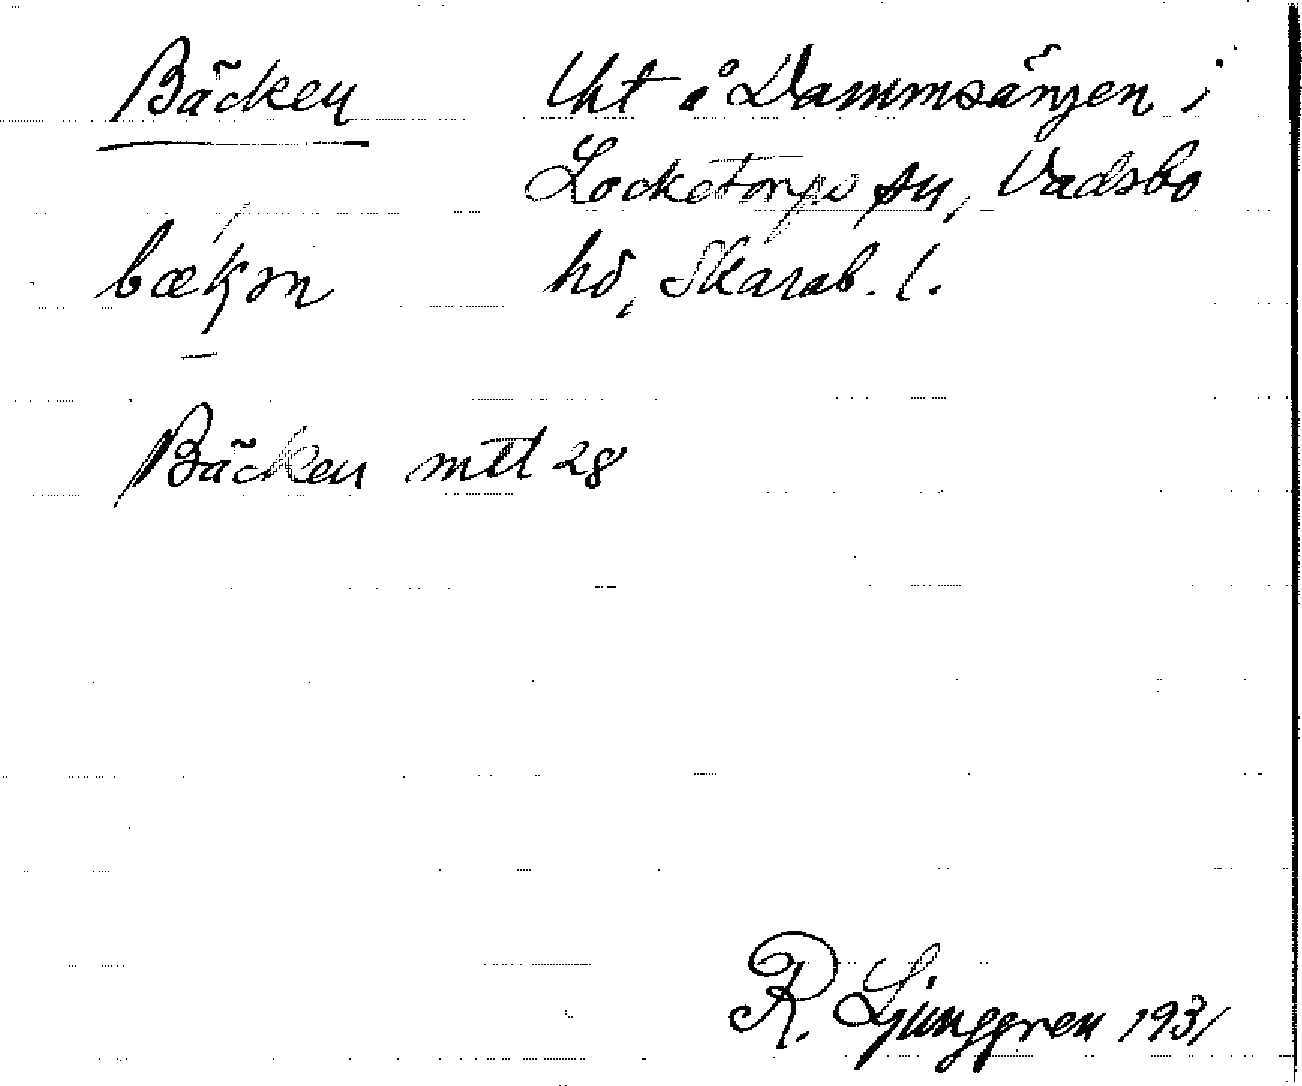 Bäcken
lht å Dammsängen i
Locketorps sn, Vadsbo
hd, Skarab. l.
Bäcken mtl 28
R. Ljunggren 1931